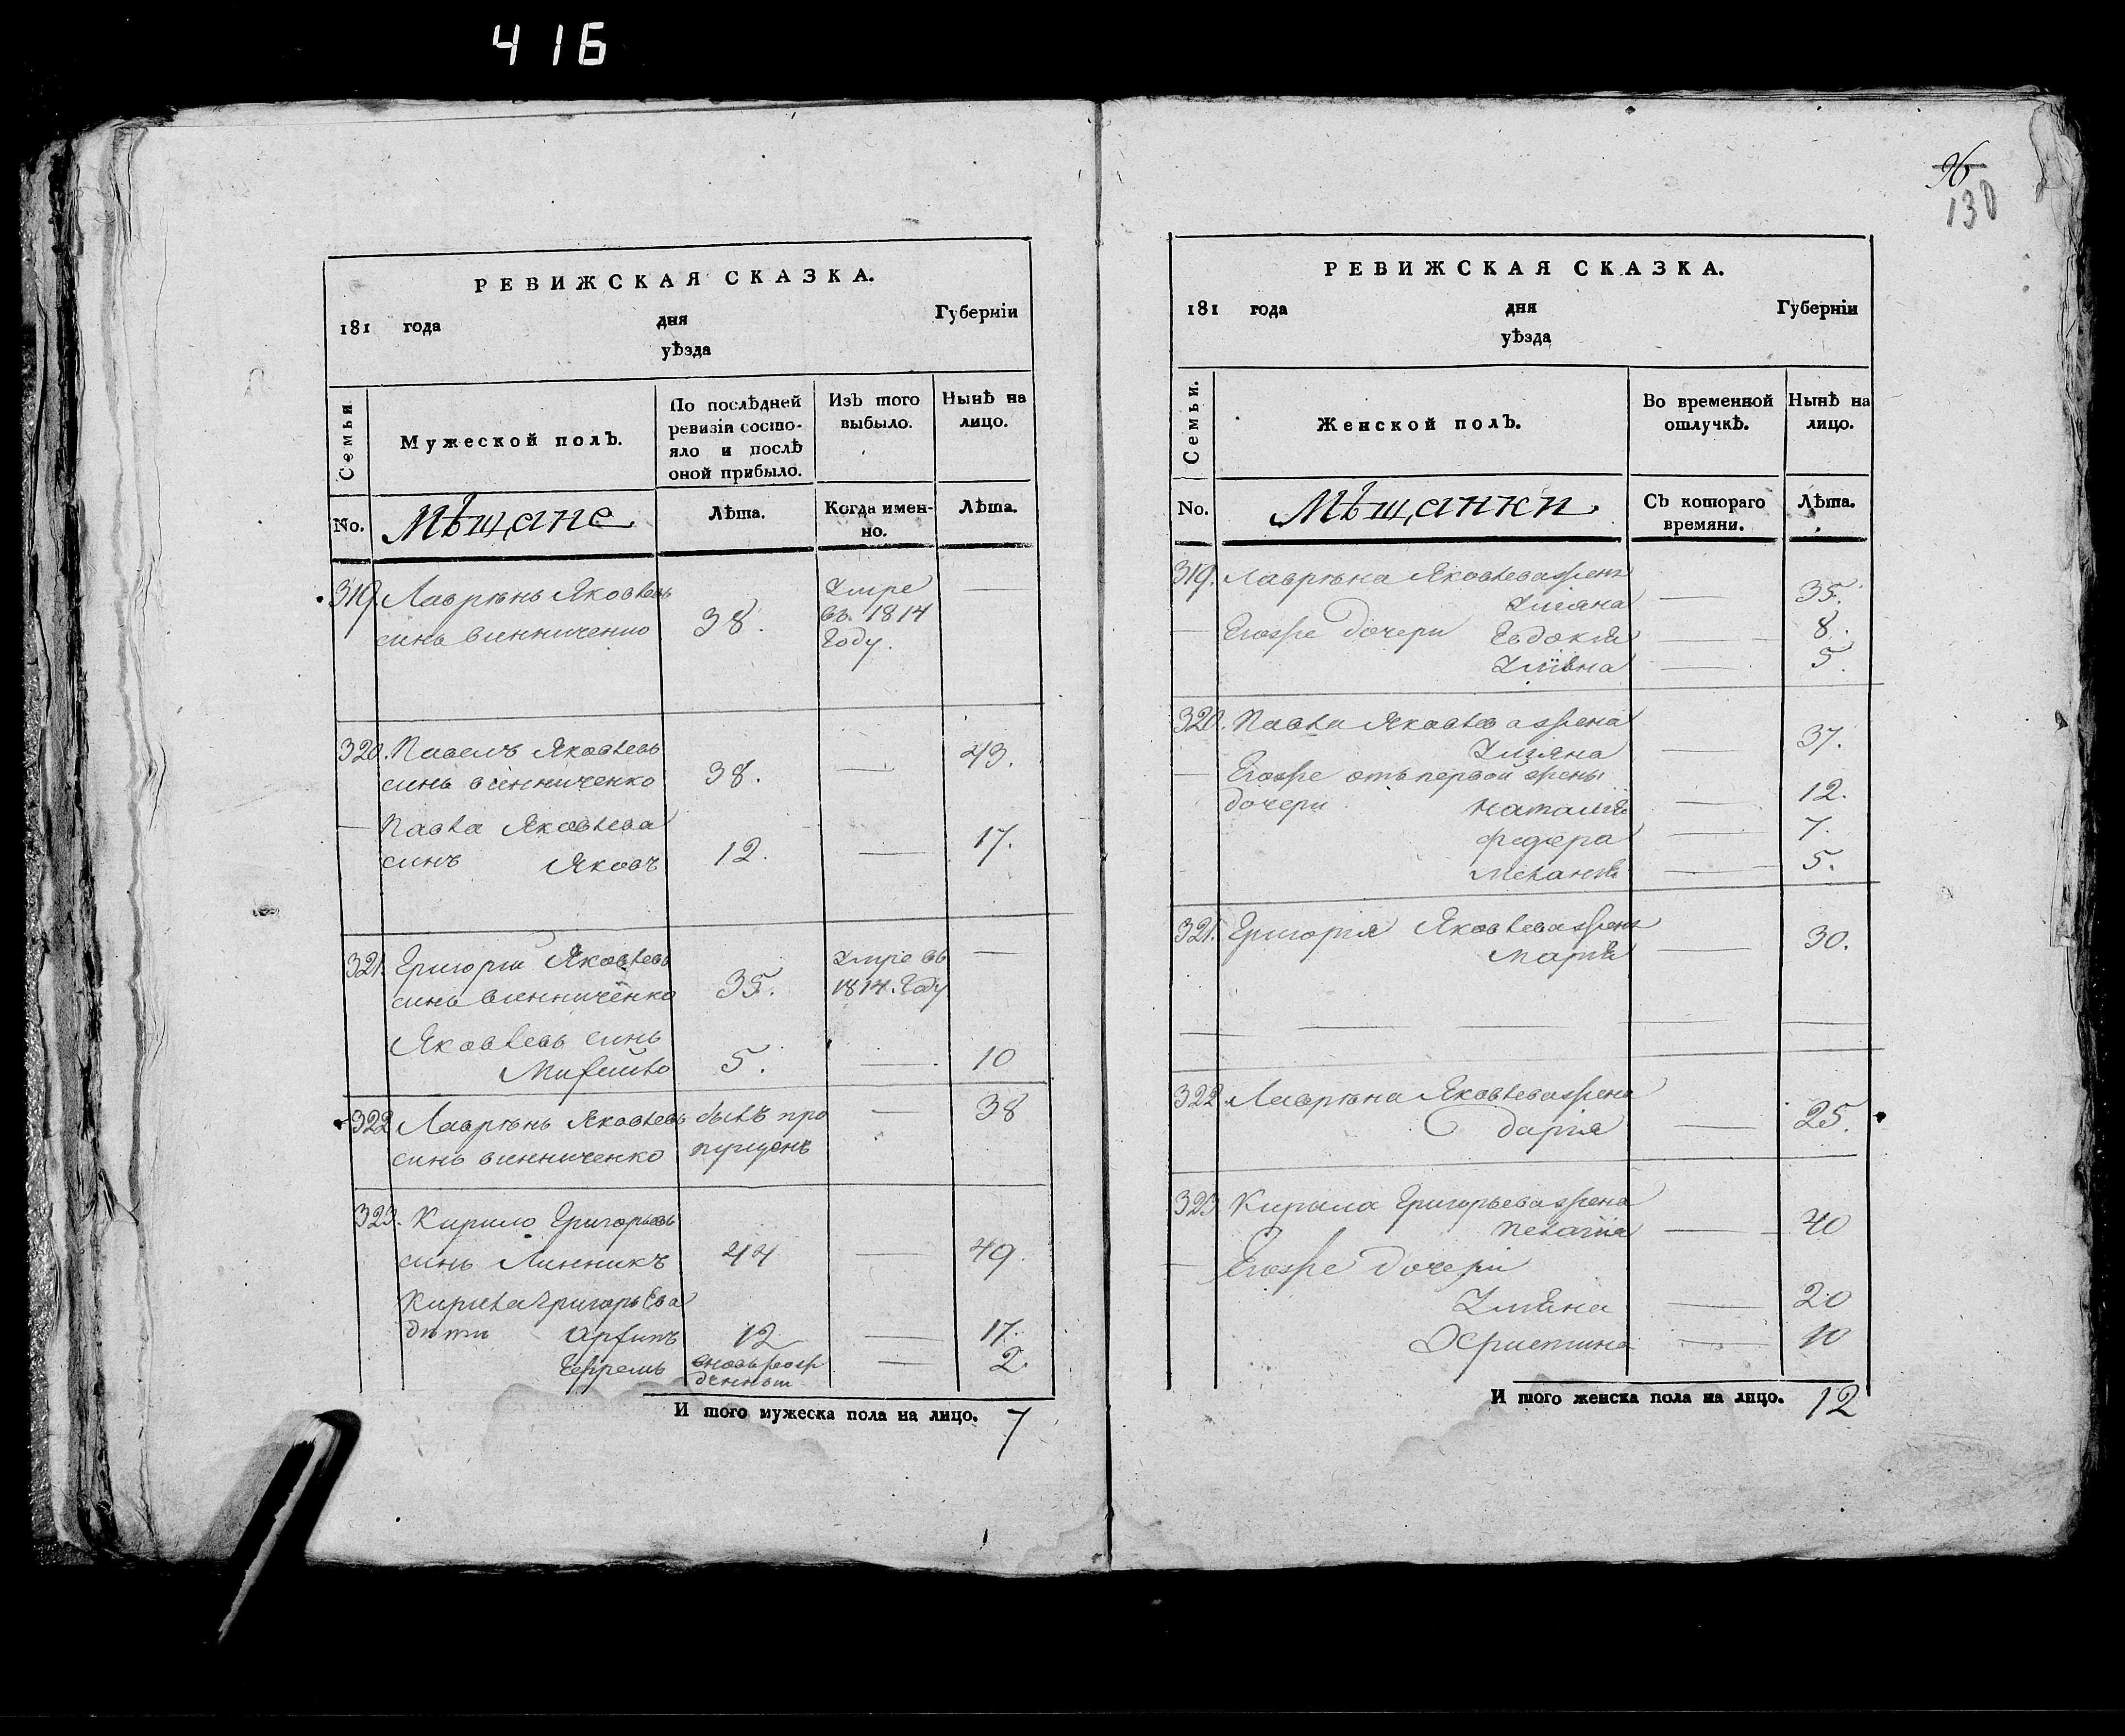 416
96
130
РЕВИЖСКАЯ СКАЗКА.
181 года дня Губерніи
уѣзда
Семьи
Мужеской полъ.
По послѣдней ревизіи состо-
яло и послѣ
оной прибыло.
Изъ того
выбыло.
Нынѣ на
лицо.
No.
Мѣщане
Лѣта.
Когда имен-
но.
Лѣта.
319. Лаврѣнъ Яковлевъ
синъ винниченко 38.
Умре
въ 1814
Году.
—
320. Павелъ Яковлевъ
синъ винниченко 38. — 43.
Павла Яковлева
синъ Яковъ 12. — 17.
321. Григорій Яковлевъ
синъ винниченко 35.
Умре въ
1814. Году
—
Яковлевъ синъ
5. — 10
322 Лаврѣнъ Яковлевъ былъ про — 38
синъ винниченко пущенъ
323. Кирило Григорьевъ
синъ Линникъ 44 — 49.
Кирила Григорьева
дѣти 12 — 17.
Ефремъ вновь рож — 2.
денный
И того мужеска пола на лицо. 7
РЕВИЖСКАЯ СКАЗКА.
181 года дня Губерніи
уѣзда
Семьи.
Женской полъ.
Во временной
отлучкѣ.
Нынѣ на
лицо.
No.
Мѣщанки
Съ котораго
времяни.
Лѣта.
319. Лаврѣна Яковлева жена
Уляна — 35.
Егожe дочери Евдокія — 8.
— 5.
320. Павла Яковлева жена
Уляна — 37.
Егоже отъ первой жены
дочери Наталія — 12.
Федора — 7.
Меланія — 5.
321. Григорія Яковлева жена
Марія — 30.
322 Лаврѣна Яковлева жена
дарія — 25.
323 Кирила Григорьева жена
Пелагія — 40
Егоже дочери
Уляна — 20
Христина — 10
И того женска пола на лицо. 12